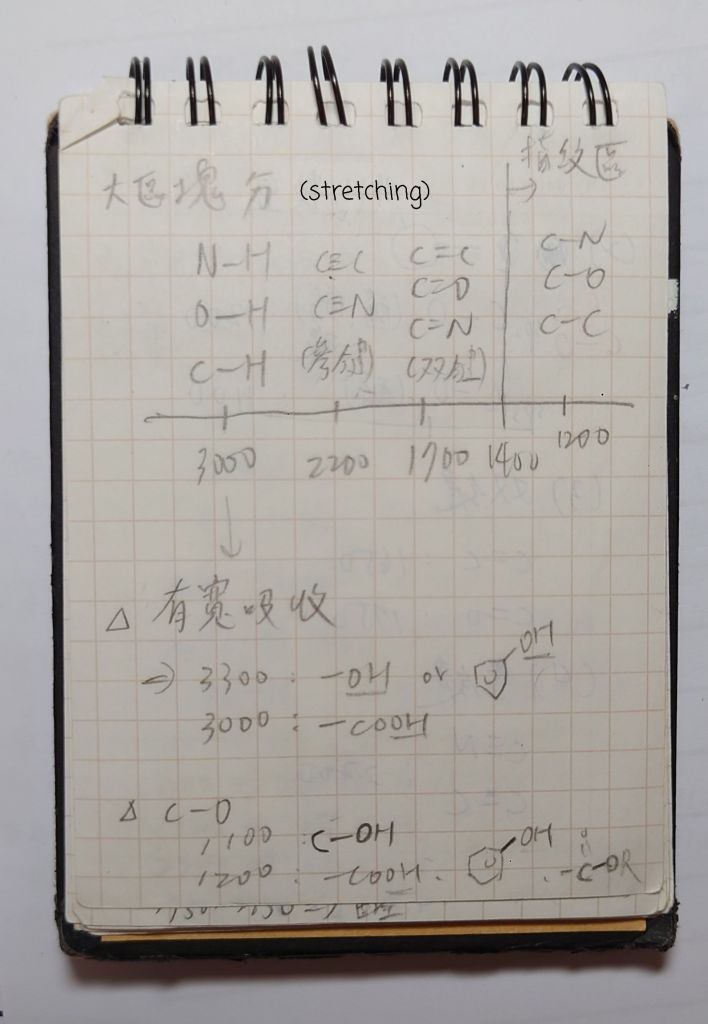 大區塊分 (stretching)
→ 指紋區
N-H C≡C C=C C-N
O-H C≡N C=O C-O
C-H (參鍵) C=N C-C
(双鍵)
3000 2200 1700 1400 1200
↓
△ 有寬吸收
⇒ 3300 : -OH or OH
3000 : -COOH
△ C-O
1100 : C-OH
1200 : -COOH . OH . -C-OR